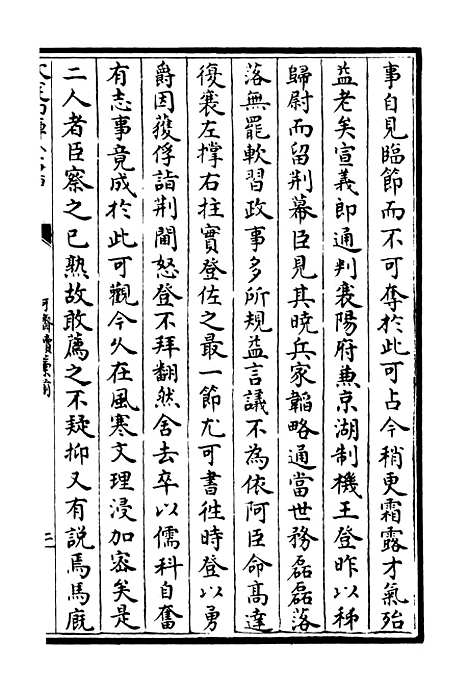 事自見臨節而不可奪於此可占今稍更霜露才氣殆
益老矣宣義郎通判襄陽府兼京湖制機王登昨以稊
歸尉而留荆幕臣見其曉兵家韜略通當世務磊磊落
落無罷軟習政事多所規益言議不為依阿臣命髙達
復襄左撑右拄實登佐之最一節尤可書徃時登以勇
爵因獲俘詣荆閫怒登不拜翻然舍去卒以儒科自奮
有志事竟成於此可觀今久在風寒文理浸加宻矣是
二人者臣察之已熟故敢薦之不疑抑又有説焉馬廐
可齋續稾前
二